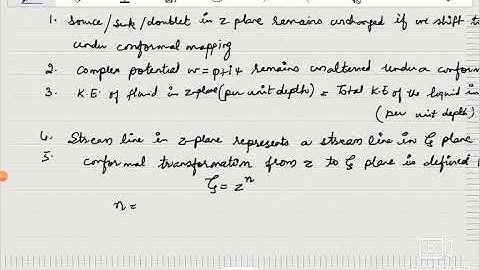 1. source/sink/doublet in z plane remains unchanged if we shift to
under conformal mapping
2. Complex potential w=φ+iψ remains unaltered under a conform
3. K.E. of fluid in z-plane (per unit depth) = Total K.E of the liquid in
(per unit depth)
4. Stream line in z-plane represents a stream line in ζ plane
5. conformal transformation from z to ζ plane is defined
ζ = zⁿ
n =